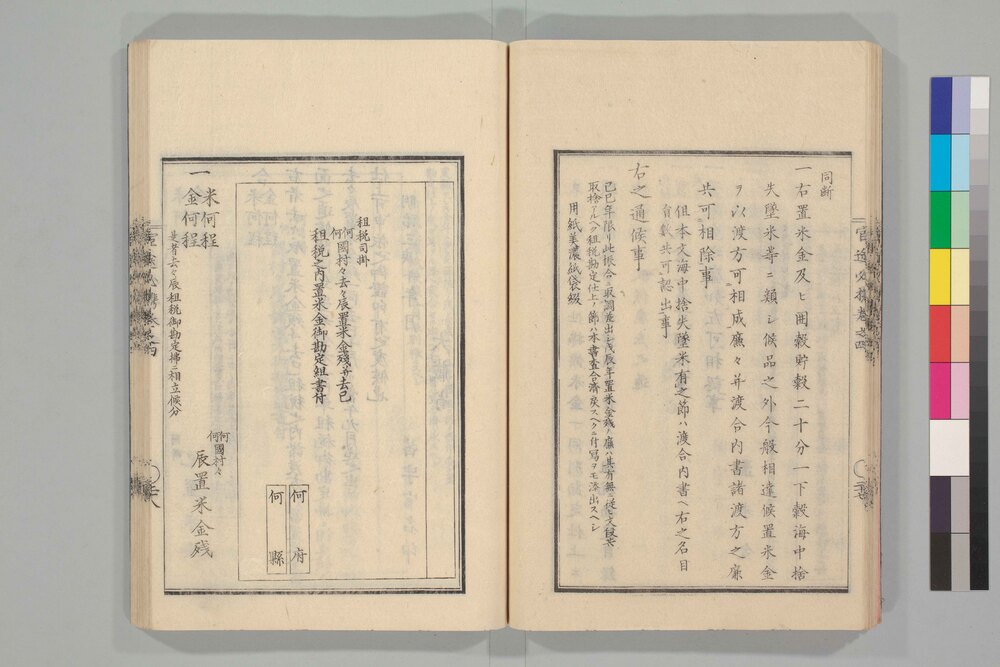 同断
一右置米金及ヒ囲穀貯穀二十分一下穀海中捨
失墜米等ニ類シ候品之外今般相違候置米金
ヲ以渡方可相成廉々并渡合内書諸渡方之廉
共可相除事
但本文海中捨失墜米有之節ハ渡合内書ヘ右之名目
肩書共可認出事
右之通候事
己巳年限リ此振合ニ取調差出シ戊辰年置米金残ノ廉ハ其有無ニ従ヒ文段共
取捨アルヘク租税勘定仕上ノ節ハ本書査合済戻スヘクニ付写ヲモ添出スヘシ
用紙美濃紙袋綴
租税司掛
何國村々去々辰置米金残并去巳
租税之内置米金御勘定組書付
何府
何縣
一米何程
金何程
是者去々辰租税御勘定拂ニ相立候分
何國村々
辰置米金残